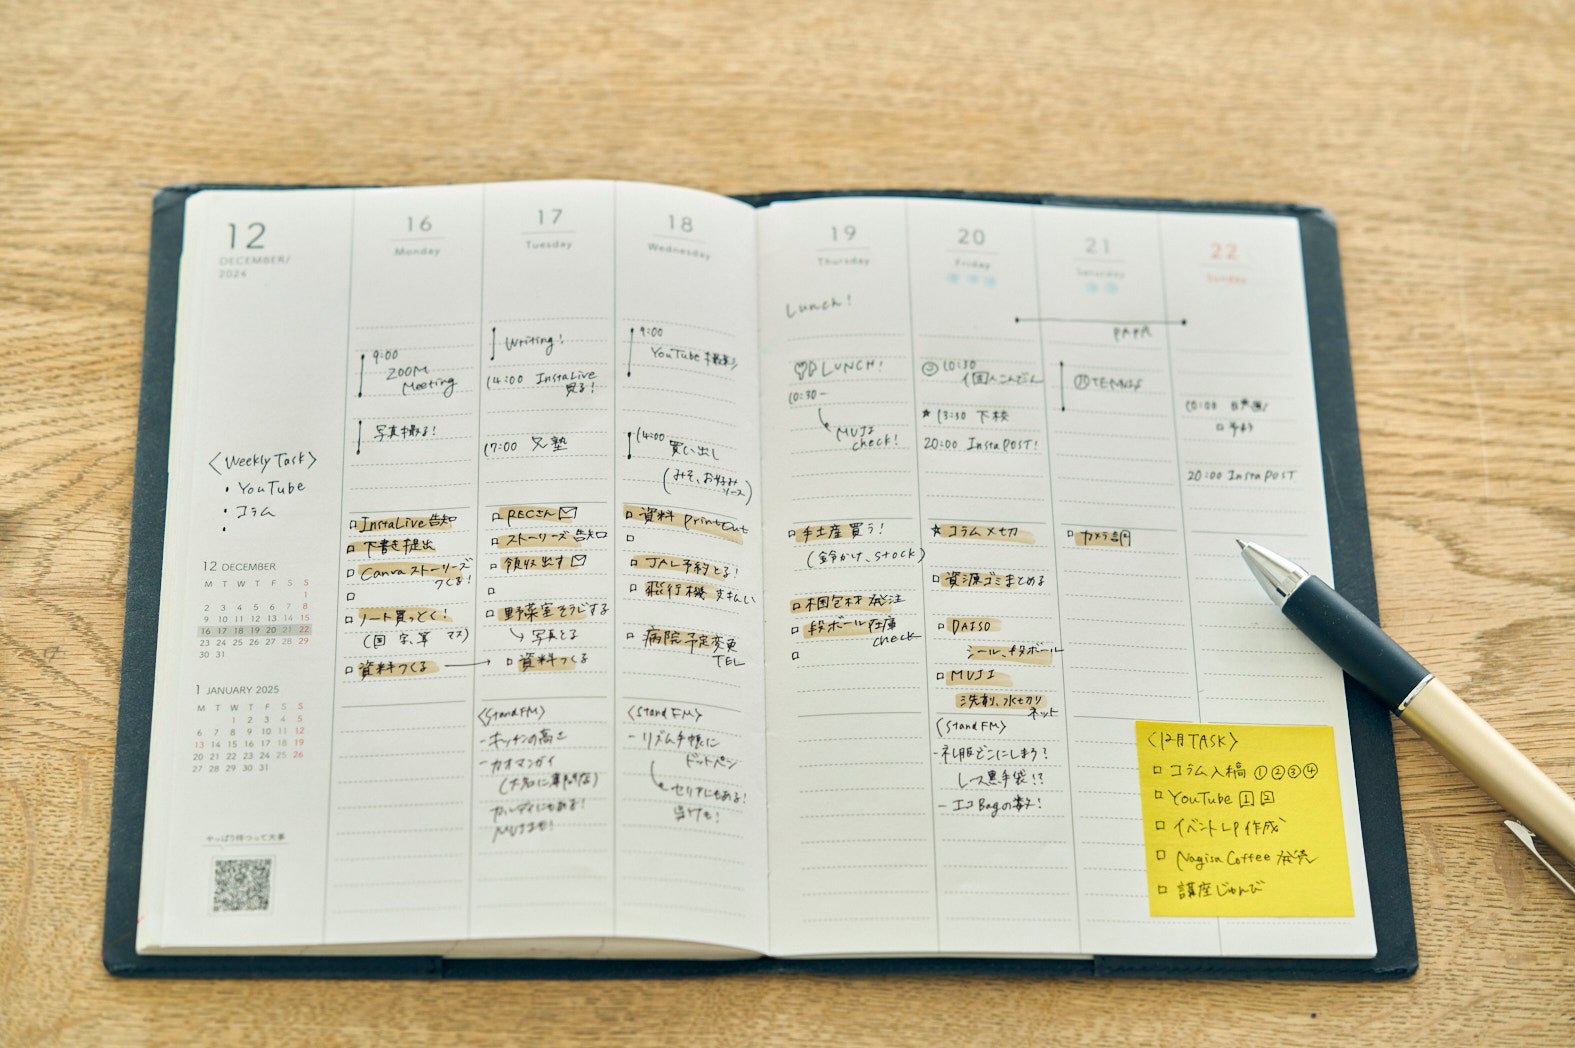 12
DECEMBER/
2024
<Weekly Task>
・YouTube
・コラム
・
12 DECEMBER
M T W T F S S
1
2 3 4 5 6 7 8
9 10 11 12 13 14 15
16 17 18 19 20 21 22
23 24 25 26 27 28 29
30 31
1 JANUARY 2025
M T W T F S S
1 2 3 4 5
6 7 8 9 10 11 12
13 14 15 16 17 18 19
20 21 22 23 24 25 26
27 28 29 30 31
やっぱり待つって大事
16
Monday
9:00
ZOOM
Meeting
写真撮る!
InstaLive 告知
下書き提出
Canva ストーリーズ
つくる!
ノート買っとく!
(国 字、算 マス)
資料つくる
17
Tuesday
Writing!
14:00 InstaLive
見る!
17:00 兄 塾
RECさん
ストーリーズ 告知
領収出す
野菜室そうじする
写真とる
資料つくる
<StandFM>
-キッチンの高さ
-カオマンガイ
カルディにもある!
MUJIも!
18
Wednesday
9:00
YouTube 撮影
14:00
買い出し
(みそ、お好み
ソース)
資料 printout
JAL予約とる!
飛行機 支払い
病院予定変更
TEL
<StandFM>
-リズム手帳に
ドットペン
セリアにもある!
19
Thursday
Lunch!
LUNCH!
10:30-
MUJI
check!
手土産 買う!
(鈴かけ、stock)
梱包材 発注
段ボール在庫
check
20
Friday
10:30
13:30 下校
20:00 Insta POST!
コラム〆切
資源ゴミまとめる
DAISO
シール、段ボール
MUJI
洗剤、水切り
ネット
<StandFM>
-礼服どこにしまう?
レース黒手袋!?
-エコBagの数!
21
Saturday
PAPA
カメラ
22
Sunday
10:00
20:00 Insta POST
<12月TASK>
コラム入稿 ①②③④
YouTube 1 2
イベントLP作成
Nagisa Coffee 発売
講座じゅんび